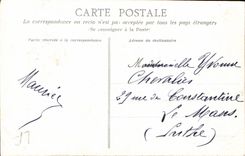 CARTE POSTALE
La correspondance au recto n'est pas acceptée par tous les pays étrangers
(Se renseigner à la Poste)
Partie réservée à la correspondance
Adresse du destinataire
Maurice
Mademoiselle Yvonne
Chevalier
29 rue de Constantine
Le Mans
(Sarthe)